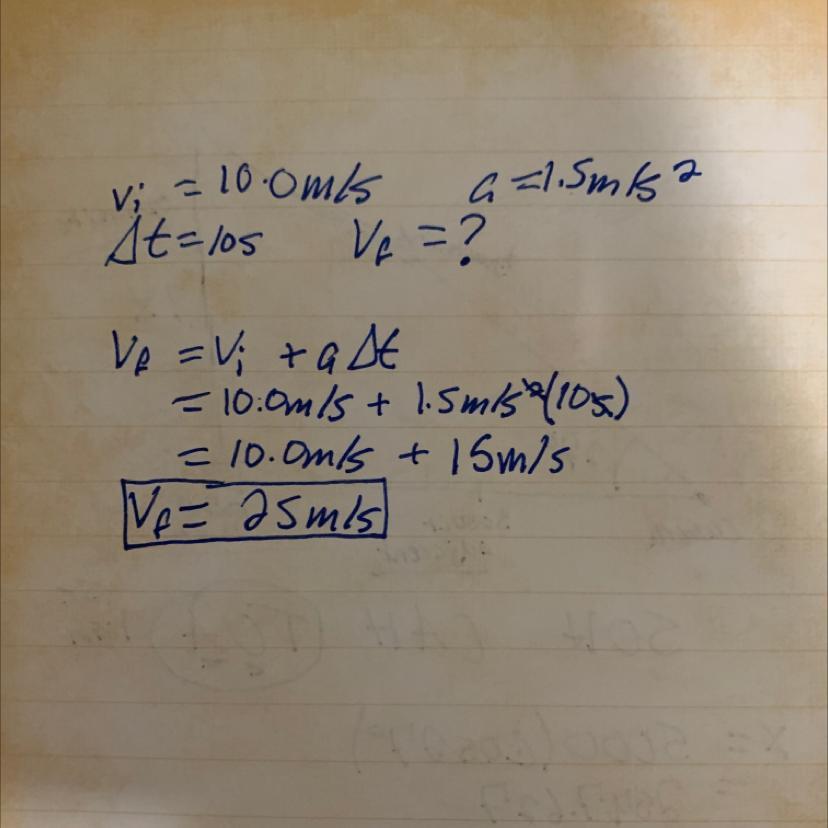 vi = 10.0m/s a = 1.5m/s²
Δt = 10s Vf = ?
Vf = Vi + aΔt
= 10.0m/s + 1.5m/s²(10s)
= 10.0m/s + 15m/s
Vf = 25m/s